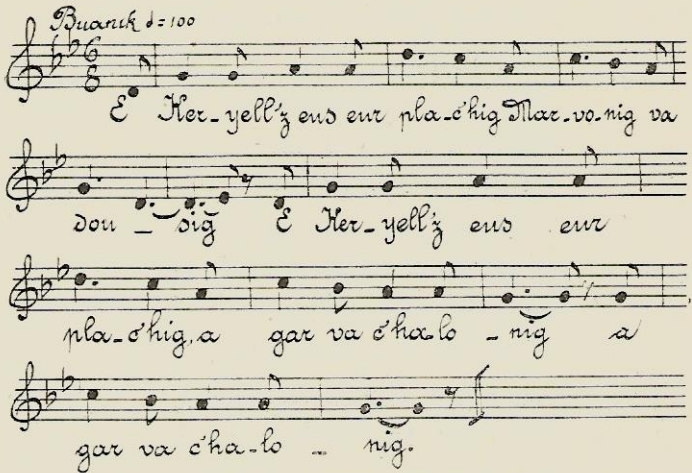 Buanik ♩=100
6
8
E Ker-yell'z eus eur pla-c'hig Mar-vo-nig va
dou - sig E Ker-yell'z eus eur
pla-c'hig, a gar va c'ha-lo - nig a
gar va c'ha-lo - nig.